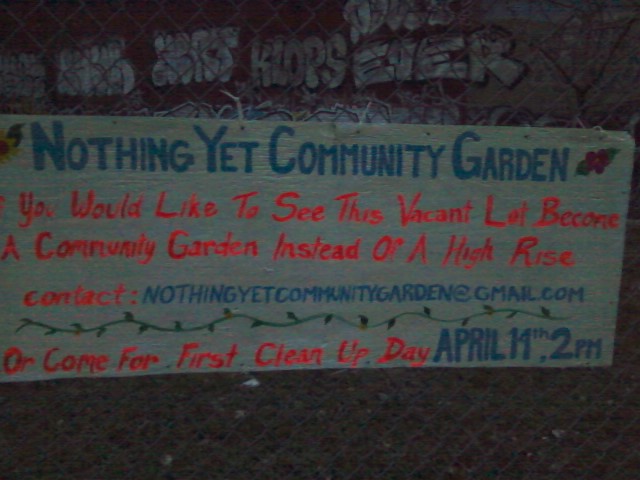 KLOPS EVER
NOTHING YET COMMUNITY GARDEN
You Would Like To See This Vacant Lot Become
A Community Garden Instead Of A High Rise
contact: NOTHINGYETCOMMUNITYGARDEN@GMAIL.COM
Or Come For First Clean Up Day APRIL 14th, 2PM